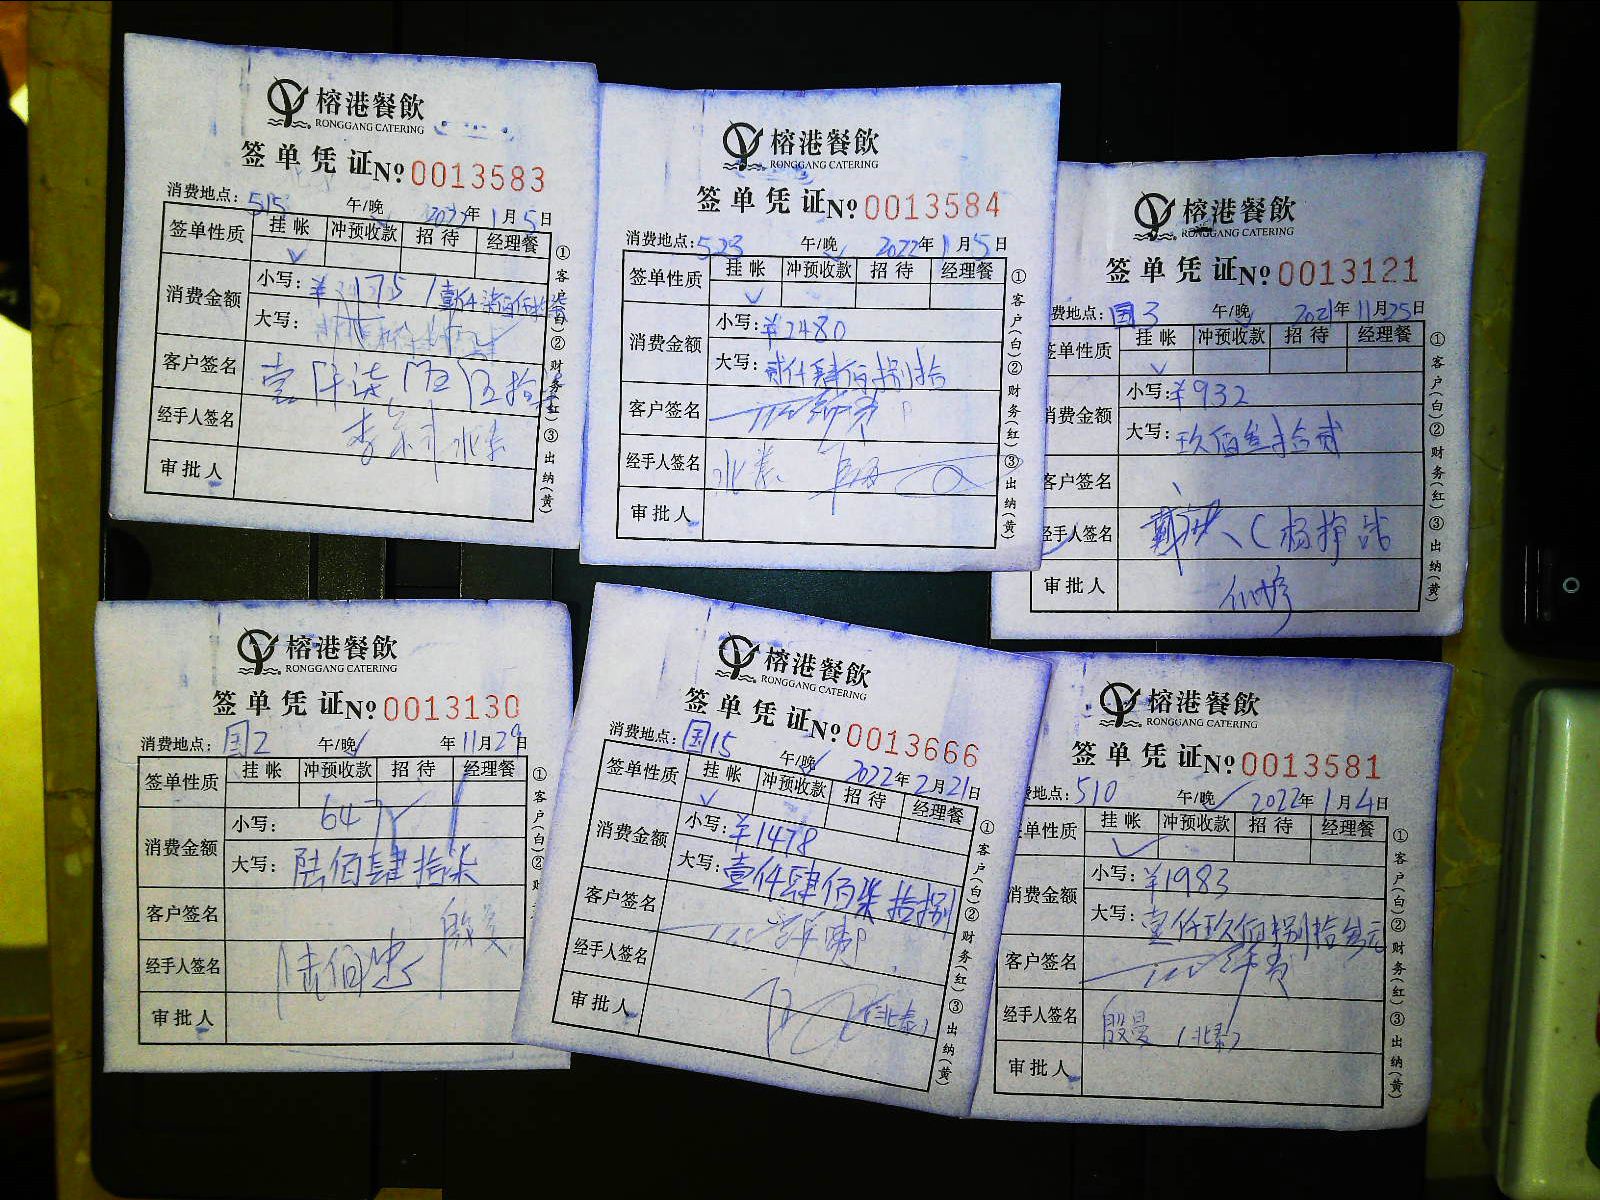 榕港餐飲
RONGGANG CATERING
签单凭证 No 0013583
消费地点: 515 午/晚 2022年1月5日
签单性质 挂帐 冲预收款 招待 经理餐
消费金额 小写:
大写:
客户签名
经手人签名
审批人
①客户(白)②财务(红)③出纳(黄)
榕港餐飲
RONGGANG CATERING
签单凭证 No 0013584
消费地点: 523 午/晚 2022年1月5日
签单性质 挂帐 冲预收款 招待 经理餐
消费金额 小写: ¥2480
大写: 贰仟肆佰捌拾
客户签名
经手人签名
审批人
①客户(白)②财务(红)③出纳(黄)
榕港餐飲
RONGGANG CATERING
签单凭证 No 0013121
费地点: 国3 午/晚 2021年11月25日
签单性质 挂帐 冲预收款 招待 经理餐
消费金额 小写: ¥932
大写: 玖佰叁拾贰
客户签名
经手人签名
审批人
①客户(白)②财务(红)③出纳(黄)
榕港餐飲
RONGGANG CATERING
签单凭证 No 0013130
消费地点: 国2 午/晚 年11月29日
签单性质 挂帐 冲预收款 招待 经理餐
消费金额 小写: 647
大写: 陆佰肆拾柒
客户签名
经手人签名
审批人
①客户(白)②财
榕港餐飲
RONGGANG CATERING
签单凭证 No 0013666
消费地点: 国15 午/晚 2022年2月21日
签单性质 挂帐 冲预收款 招待 经理餐
消费金额 小写: ¥1478
大写: 壹仟肆佰柒拾捌
客户签名
经手人签名
审批人
①客户(白)②财务(红)③出纳(黄)
榕港餐飲
RONGGANG CATERING
签单凭证 No 0013581
费地点: 510 午/晚 2022年1月4日
单性质 挂帐 冲预收款 招待 经理餐
消费金额 小写: ¥1983
大写: 壹仟玖佰捌拾叁元
客户签名
经手人签名 殷曼
审批人
①客户(白)②财务(红)③出纳(黄)